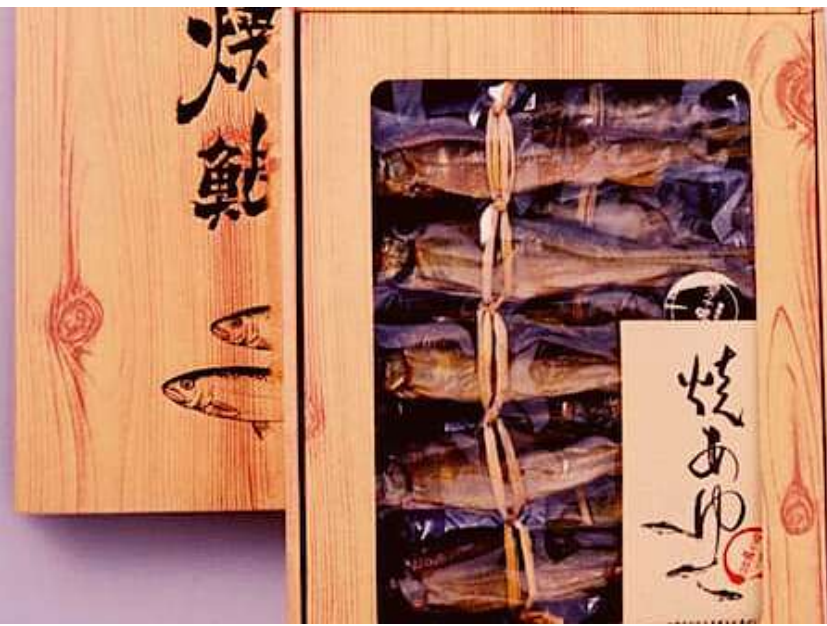 焼鮎
焼あゆ